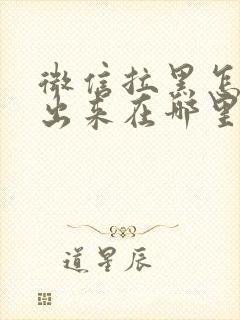 微信拉黑怎
出来在哪里
道星辰